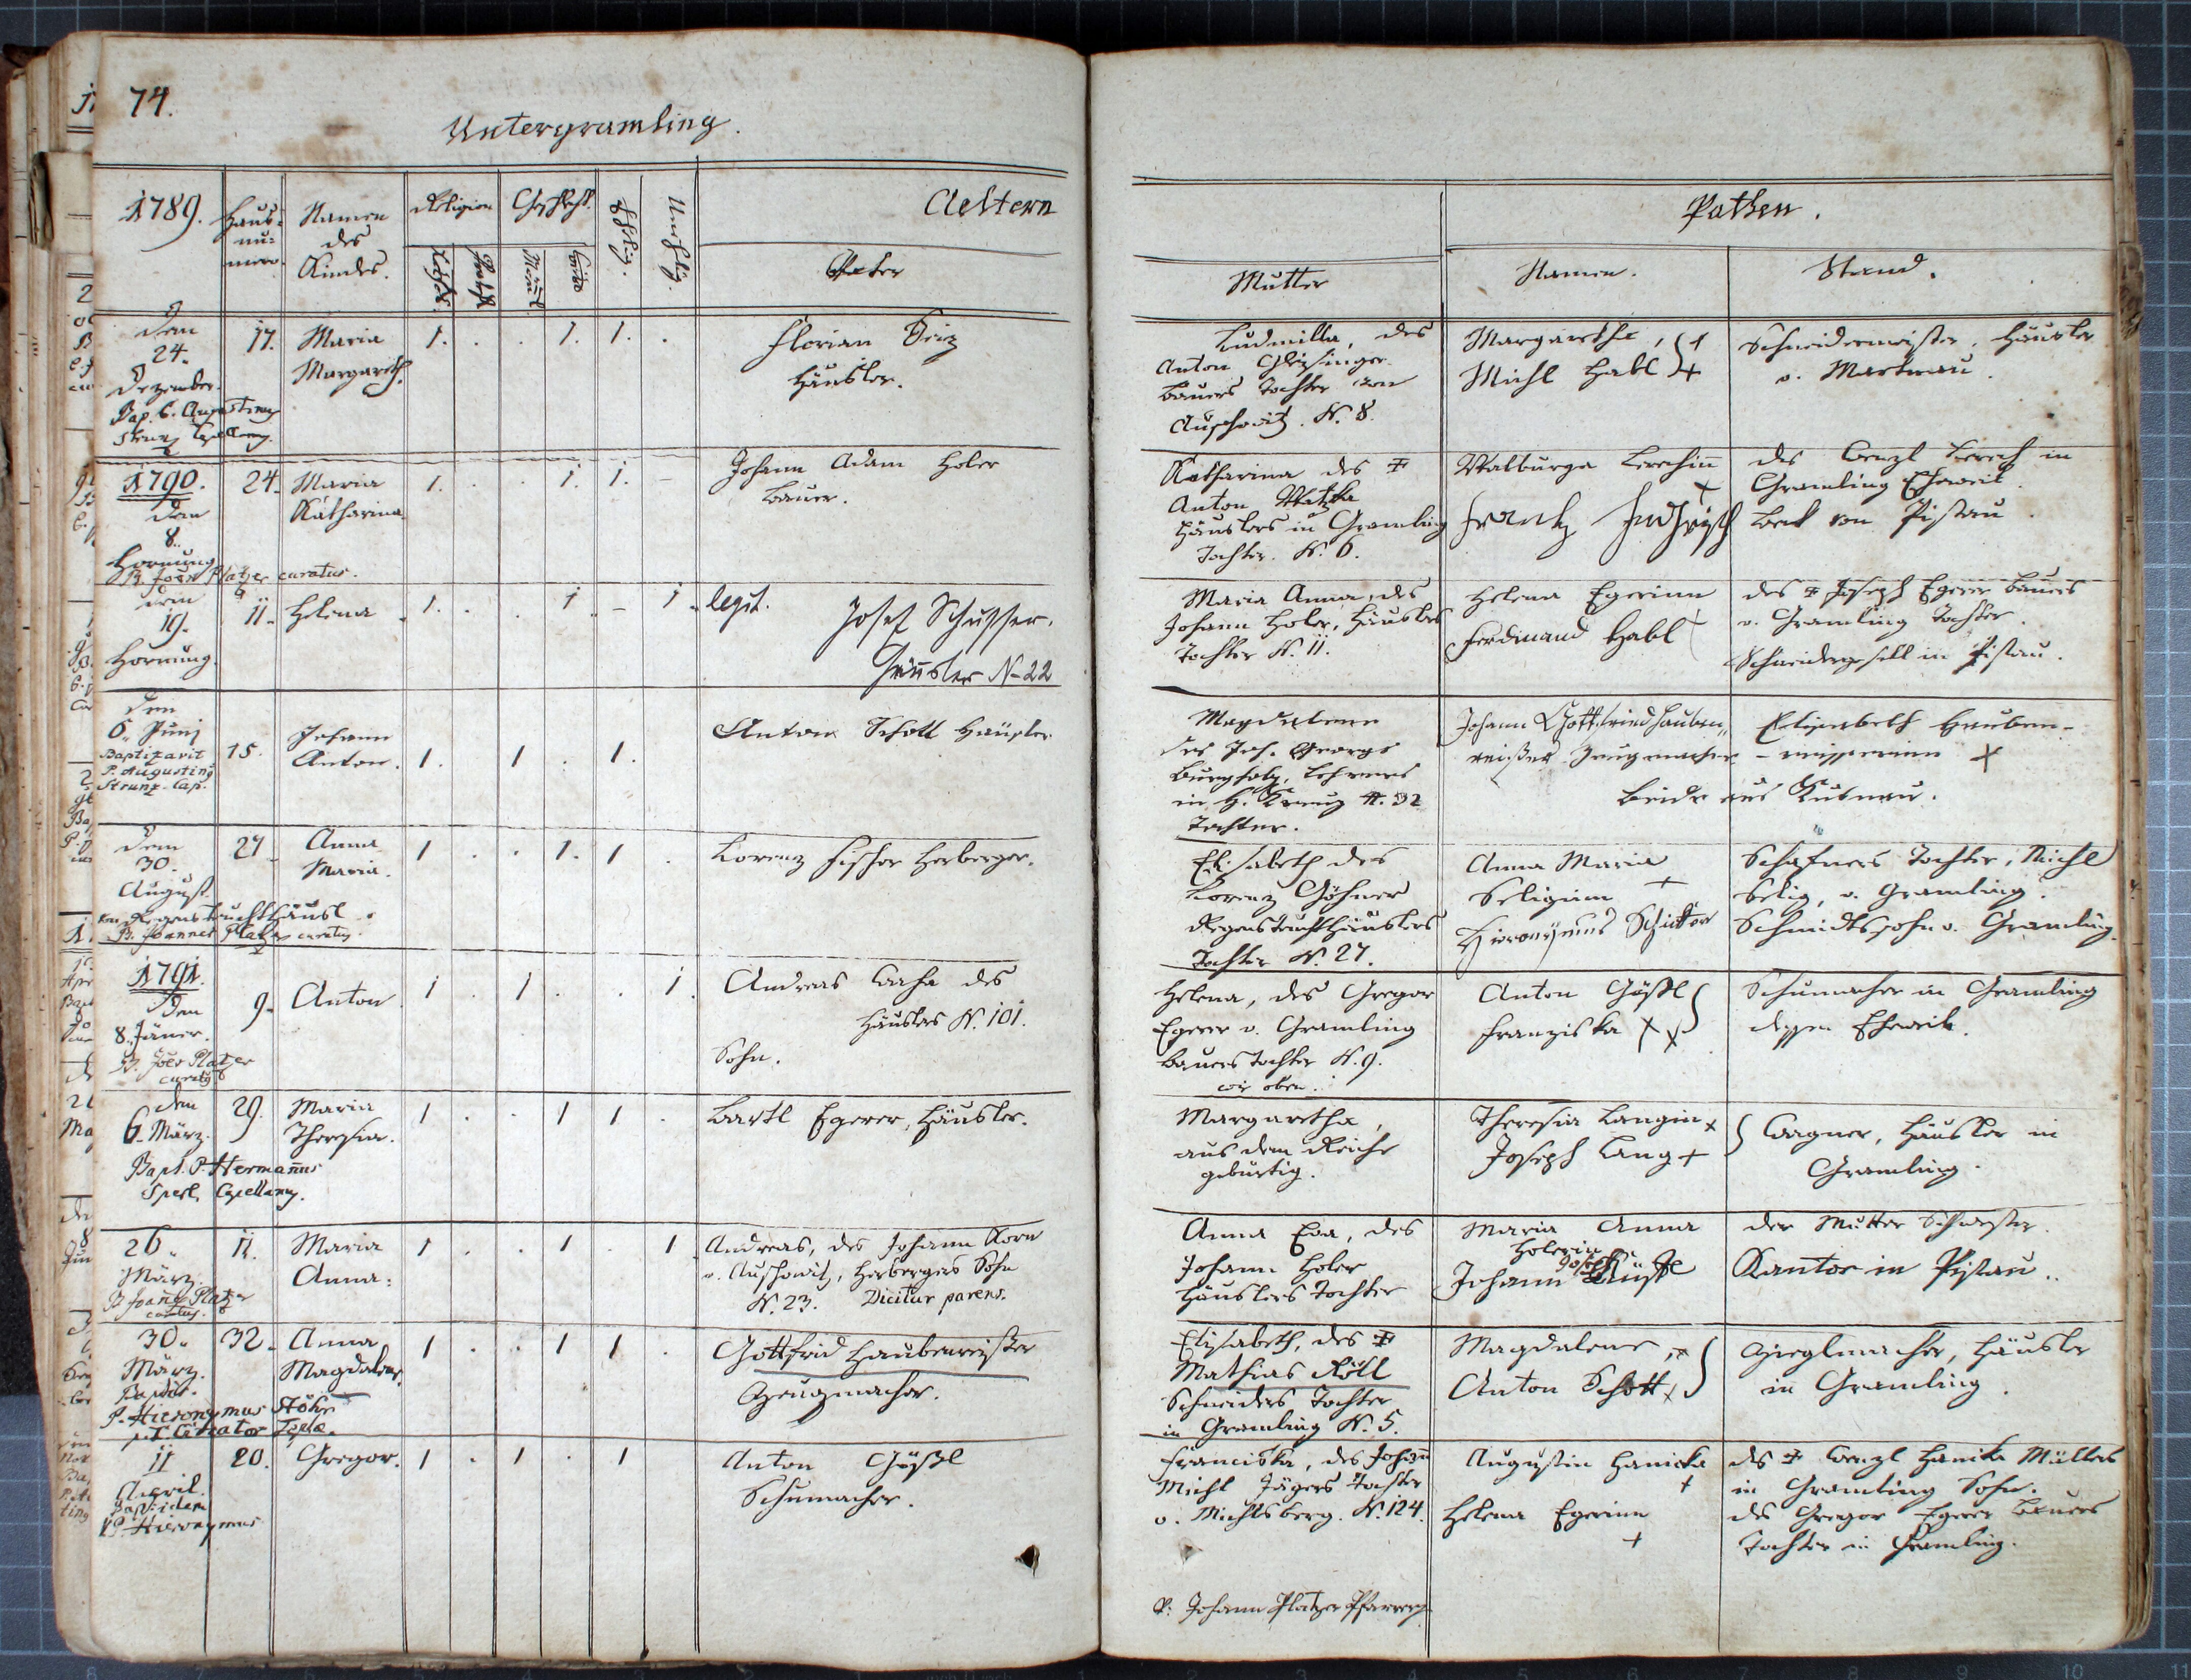 74.
Untergramling.
1789.
Haus-
nu-
mero.
Namen
des
Kindes.
Religion
Geschlecht.
Ehelig.
Unehlig.
Aeltern
Vater
Mutter
Pathen.
Namen.
Stand.
Den
24.
Dezember.
Bap. P. Augustinus
Strunz Capellanus.
17.
Maria
Margareth.
1. . . 1. 1. .
Florian
Häusler.
Ludmilla, des
Anton
Bauers Tochter von
Auschowitz. N. 8.
Margaretha, +
Michl Habl +
Schneidermeister, Häusler
v. Martnau.
1790.
Den
8.
Hornung
B. Joës Platzer curatus.
24.
Maria
Katharina.
1. . . 1. 1. -
Johann Adam Holer
Bauer.
Katharina des ‡
Anton Watzka
Häuslers in Gramling
Tochter. N. 6.
Walburga Lerchin̄
+
Frantz
des Wenzl Lerch in
Gramling Eheweib.
Beck von Pistau.
Den
19.
Hornung.
11.
Helena
1. . . 1. - 1.
legit.
Josef Schusser.
Häusler N-22
Maria Anna, des
Johann Holer, Häuslers
Tochter N. 11.
Helena Egerinn
Ferdinand Habl
des ‡ Joseph Egerer Bauers
v. Gramling Tochter.
Schneidergesell in Pistau.
Den
6. Junj
Baptizavit
P. Augustinus
Strunz. Cap.
15.
Johann
Anton.
1. 1 . 1.
Anton Schott Häusler
Magdalena
des Joh. Georgs
Burgholz, Lehrers
in H. Kreuz N. 32
Tochter.
Johann Gottfried Hauben„
reißer Zeugmacher
Elisabeth Hauben-
- reisserinn +
beide aus Kutnau.
Den
30.
August.
Regensteuchthäusl.
B. Joannes Platzer curatus.
27
Anna
Maria.
1 . . 1. 1 .
Lorenz Fischer Herberger.
Elisabeth des
Lorenz Göhner
Regensteuchthäuslers
Tochter N. 27.
Anna Maria
Seliginn +
Hieronÿmus
Schafners Tochter, Michl
Selig, v. Gramling.
Schmidtssohn v. Gramling.
1791.
Den
8. Jäner.
B. Joës Platzer
curatus
9.
Anton
1 . 1 . . 1.
Andreas Wacha des
Häuslers N. 101.
Sohn.
Helena, des Gregor
Egerer v. Gramling
Bauers Tochter N. 9.
wie oben.
Anton Gößl
Franziska + +
Schumacher in Gramling
dessen Eheweib.
Den
6. März.
Bapt. P. Hermañus
Sperl, Capellanus.
29.
Maria
Theresia.
1 . . 1 1 .
Bartl Egerer, Häusler.
Margaretha,
aus dem Reiche
gebürtig.
Theresia Langin +
Joseph Lang +
Wagner, Häusler in
Gramling.
26.
März.
B. Joañes Platzer
curatus.
11.
Maria
Anna:
1 . . 1 . 1
Andreas, des Johann Korn
v. Auschowitz, Herbergers Sohn
N. 23. Dicitur parens.
Anna Eva, des
Johann Holer
Häuslers Tochter
Maria Anna
Holerin
Johann Joseph
der Mutter Schwester.
Kantor in Pistau..
30.
März.
Baptiz.
P. Hieronymus Stöhr
32.
Anna
Magdalena.
1 . . 1 1 .
Gottfrid Haubenreißer
Zeugmacher.
Elisabeth, des ‡
Mathias Köll
Schneiders Tochter
in Gramling N. 5.
Magdalena, +
Anton Schott +
Zieglmacher, Häusler
in Gramling.
11
April.
Bapt: idem
P. Hieronymus
20.
Gregor.
1 . 1 . 1
Anton Gößl
Schumacher.
Franciska, des Johañ
Michl Jägers Tochter
v. Michlsberg. N. 124.
Augustin Hanicka
+
Helena Egerinn
+
des ‡ Wenzl Hanika Müllers
in Gramling Sohn.
des Gregor Egerer Bauers
Tochter in Gramling.
P: Johann Platzer Pfarrer